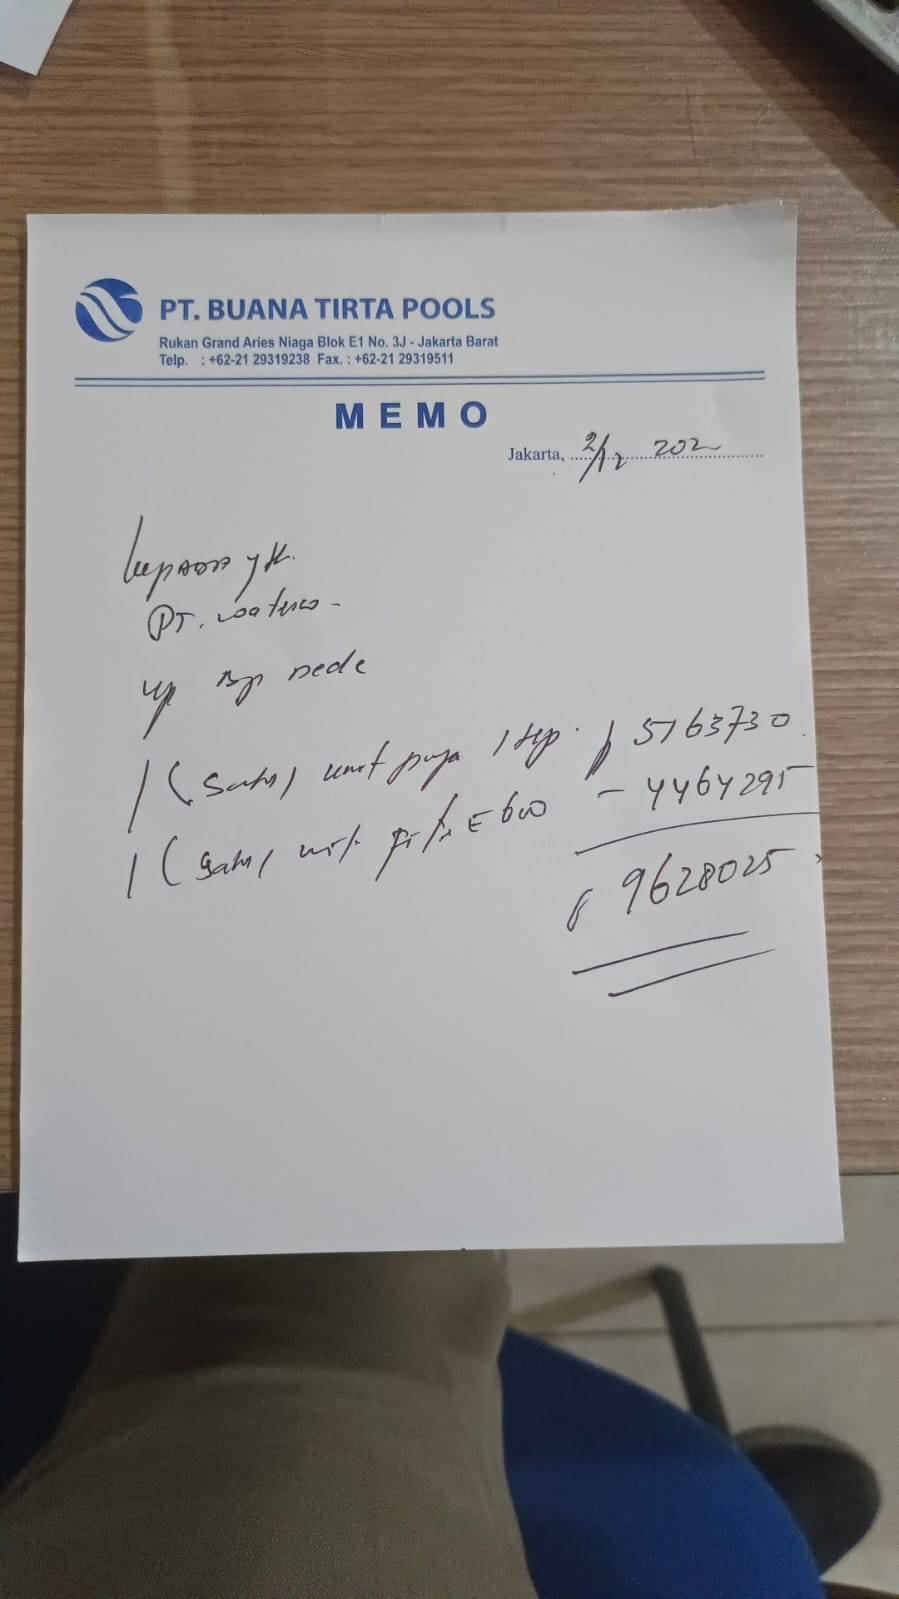 PT. BUANA TIRTA POOLS
Rukan Grand Aries Niaga Blok E1 No. 3J - Jakarta Barat
Telp. : +62-21 29319238 Fax. : +62-21 29319511
MEMO
Jakarta, 2/12 202
kepada yth.
PT. waterco -
up Bp Dede
1 (satu) unit 1 Hp. 5163730
1 (satu) unit E 600 - 4464295
9628025